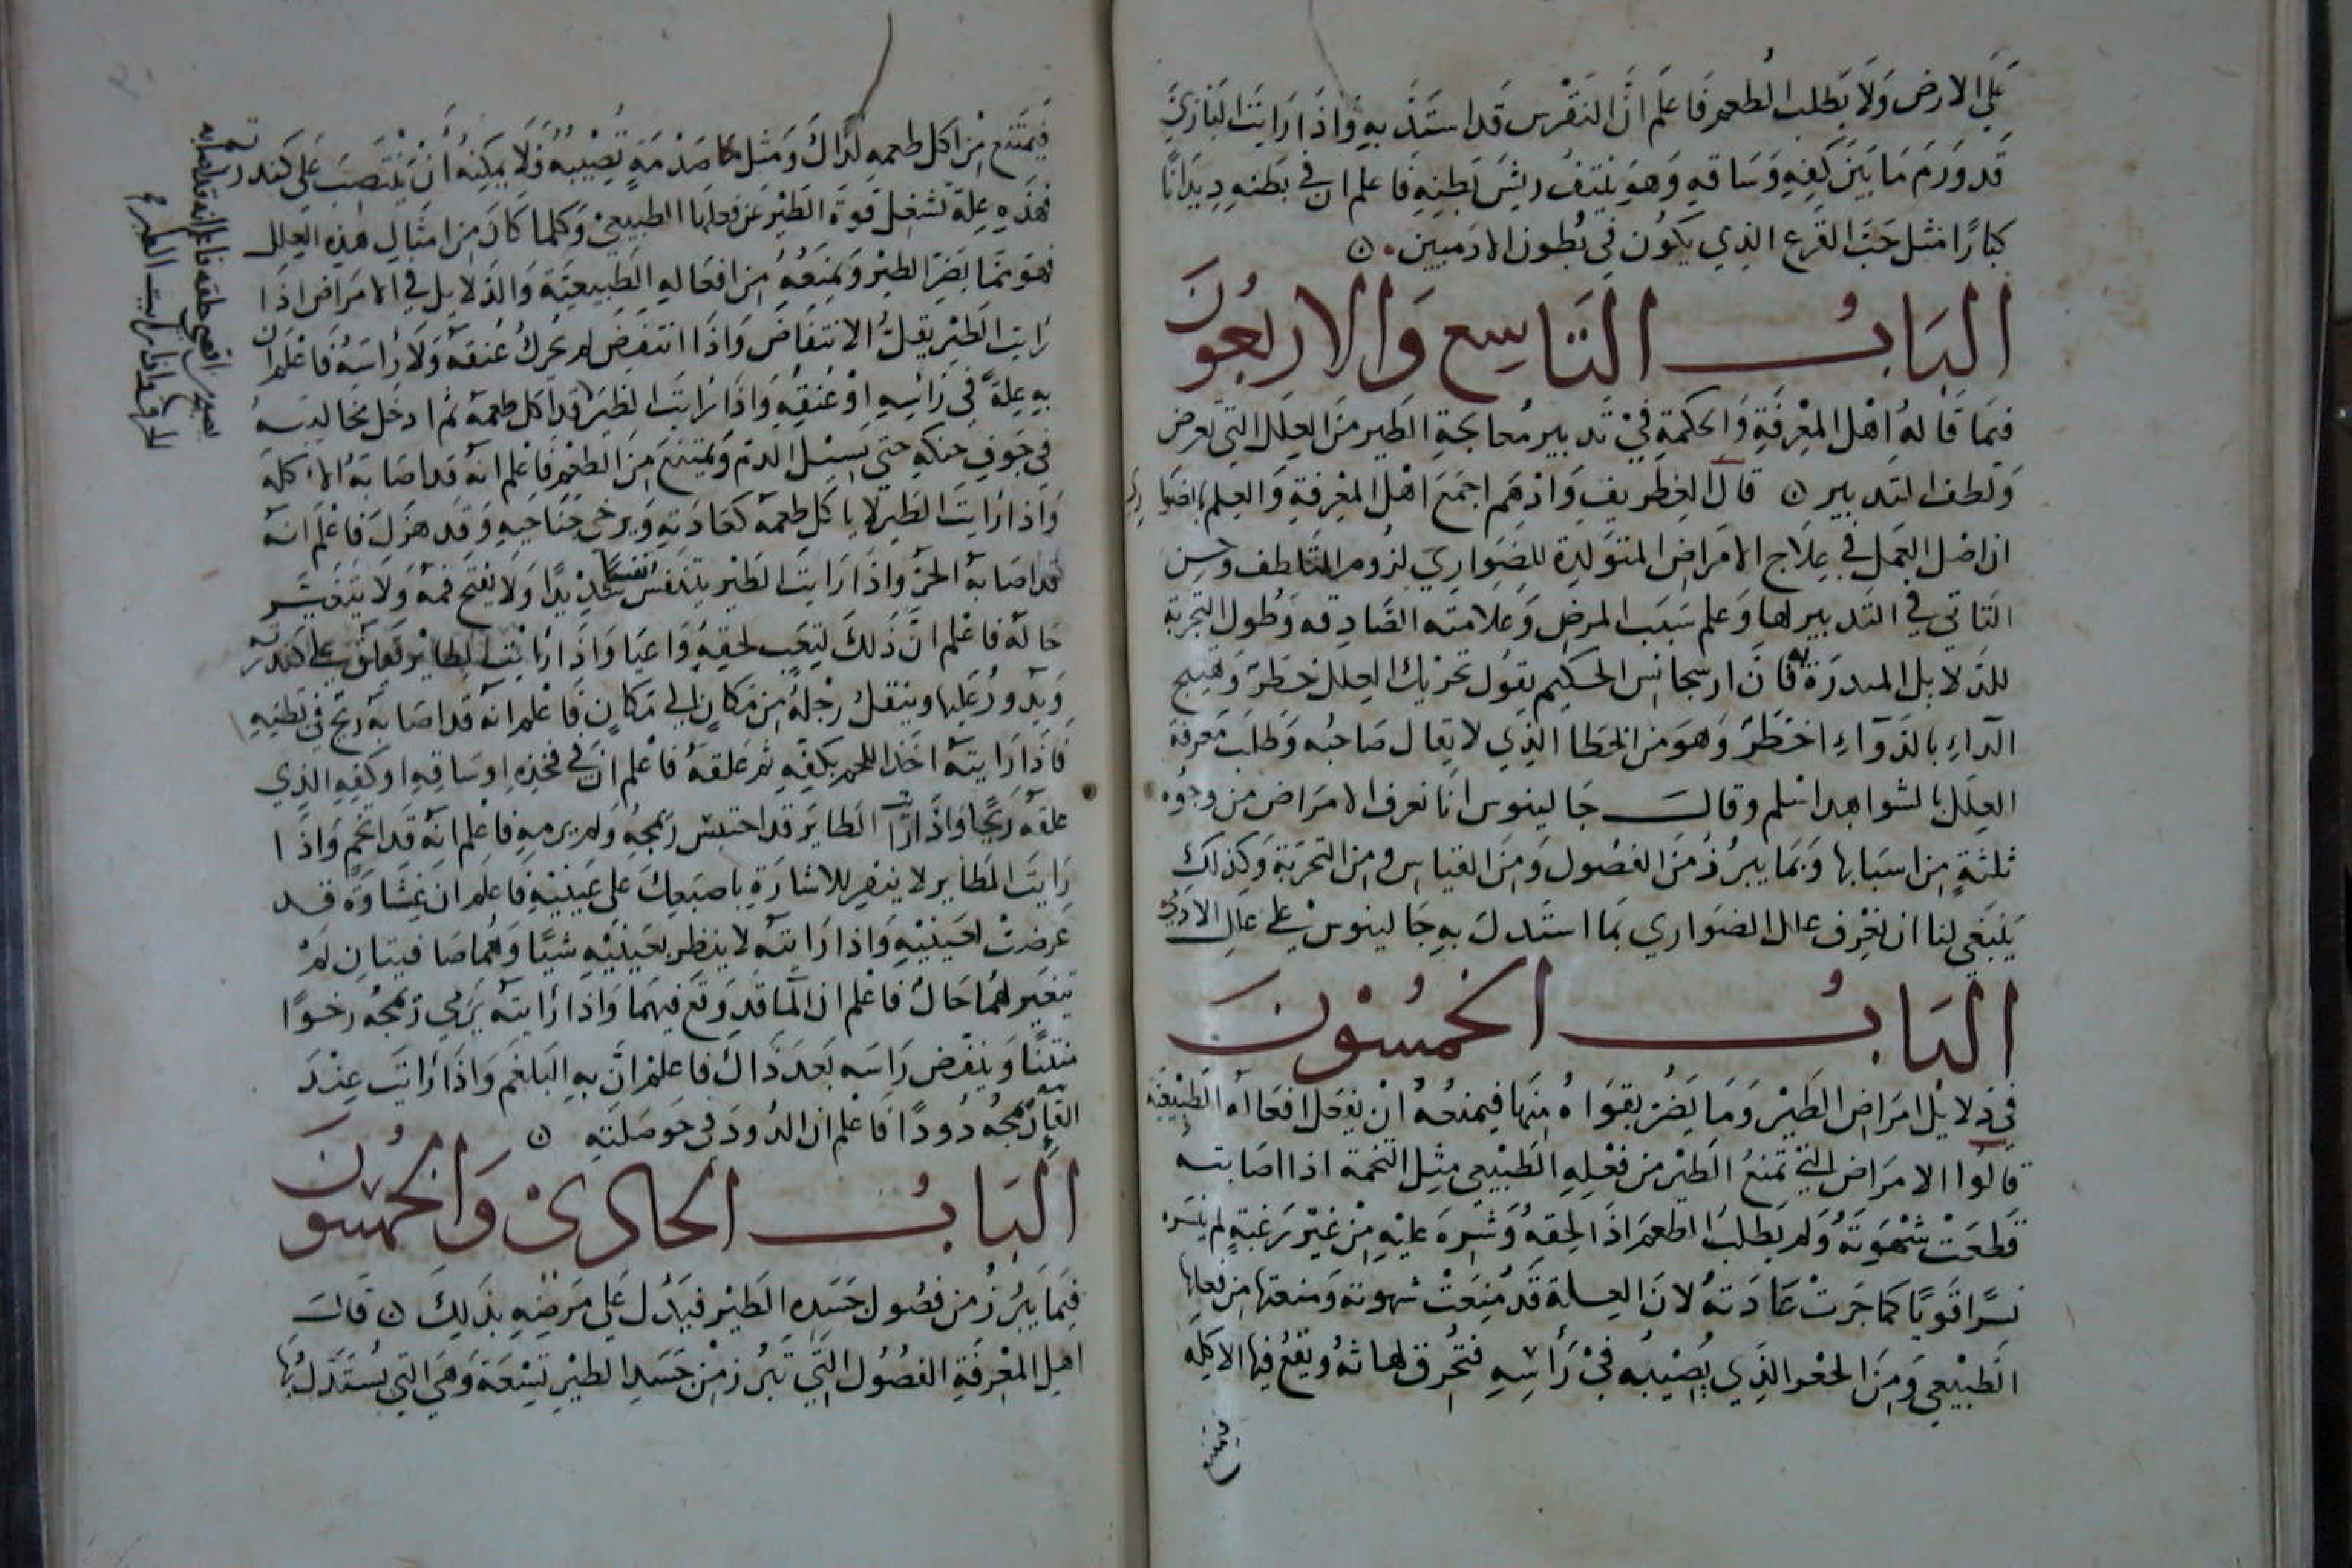 على الارض وَلَا يَطلب الطعم فَاعلم انَّ النقرس قَد استَدَّ بهِ وَاذَا رَايتَ البَازيَ
قَد وَرَمَ مَا بَيَن كَفِهِ وَسَاقهِ وَهوَ يَنتفُ ريشَ بَطنِهِ فَاعلم ان في بَطنهِ دِيدَانًا
كبارًا مثل حَبّ القَرع الذِي يَكوُن في بُطون الادَميين ه
البَابُ التَاسِع وَالاربعُونَ
فيمَا قَالهُ اهْل المعْرِفَةِ وَالحكمَةِ فيْ تَدبير مُعالجَةِ الطَيرِ مَنَ العِلَل التي تعرض
وَلطف التَدبير ه قَالَ الغطريف وَادْهَم اجمَعَ اهْل المعْرفَةِ وَالعِلم بالضوا
ري
ان اصْل العَمل في عِلَاج الامَراض المتوَلدِة للضَوارِي لزُوم التَلطف وحسن
التَاتي في التَدبيرِ لهَا وَعلم سَبَب المرَض وَعَلَامَته الصَّادِقه وَطُول التجربَة
للدَلايل المبدرَة فَانَ ارسجانسِ الحكيم يَقوُل تحريْك العِلل خَطَر وَهيج
الدَاءِ بالدَوَآءِ اخطَرُ وَهوَ مَن الخطا الذِي لا يقال صَاحبُه وَطَلَب مَعرفَة
العِلَل بالشواهد اسْلم وقال جَالينوس انَا نعرف الامرَاض من وجوُه
ثلثةٍ مِن اسبَابها وَبمَا يبرُزُ منَ الفصُول وَمِنَ القيَاسِ ومِن التجربَة وَكذلك
يَنبَغي لنا ان نعْرِف علل الضوَاري بمَا استَدلَ بهِ جَالينوسْ على علل الادَمي
البَابُ الخَمسُوْنَ
في دَلايْل امَراض الطَيْر وَمَا يَضُر بقوَاهُ مِنهَا فيمنعُهُ انْ يفعَل افعَالهُ الطَبيْعيَة
قَالُوا الامرَاض التي تمنعُ الطَيْر من فعْلِهِ الطَبيْعي مِثل التخمة اذا اصَابته
قَطعَتْ شهْوَتهُ وَلم يَطلب الطعمَ اذَا لحقهُ وَشَرهَ عليْهِ مِنْ غيْر رَغبَةٍ لم ينسره
نسرًا قَويًا كما جَرتْ عَادَتهُ لانَ العِلة قَد مُنِعَتْ شهوته وَمنعتها مِن فعلها
الطَبيْعي وَمِنَ الحُفر الذِي يصيْبهُ فيْ رَأسِهِ فتُحرق لهاتهُ ويقع فيها الاكِلَه
فيمتنع
فيَمتَنع مِنْ اكل طعمهِ لذَاكَ وَمَثل صَدْمَةٍ تُصِيْبهُ فَلَا يمكِنُهُ أنْ يَنْتَصِبَ عَلى كندرته
فهَذِهِ عِلَة تشغل قوةَ الطَيْر عَن فعلهَا الطبيعِيْ وَكلمَا كَانَ مِن امثَالِ هذِهِ العِلل
فهوَ ممَا يَضرُ الطَيْر وَيمنَعُهُ مِن افعَالهِ الطَبيعيَّة وَالدَلايل في الامرَاض اذَا
رَايت الطَيْر يقلُّ الانتفَاضَ وَاذَا انتَفضَ لم يحَرِكْ عُنقهُ وَلَا رَاسَهُ فَاعْلم ان
بهِ عِلةً في رَأسِهِ اوْ عُنقهِ وَاذَا رَايتَ الطَيرَ قَد اكل طعمهُ ثم ادخَل مخاليبهُ
في جَوفِ حنكهِ حتى يَسِيْل الدَم وَيمتنعَ مِنَ الطعْم فَاعْلم انه قَد اصَابَهُ الاكلة
وَاذا رَايتَ الطَيرَ لا يَاكل طعمه كعَادَتهِ وَيرخي جنَاحيهِ وَقَد هزلَ فَاعْلَم انهُ
قد اصَابهُ الحرُّ وَاذَا رَايتَ الطَيْر يتنَفسَ نفسًا شديْدًا وَلَا يفتَح فمهُ وَلَا يتَغيَّر
حَاله فاعْلم انَّ ذَلكَ لتعَب لحقهُ وَاعيَا وَاذَا رَايْت الطايْر تعلق على كندرته
وَيدورُ عَليها وينقلُ رجْلهُ مِن مَكانٍ الى مَكانٍ فَاعْلم انه قَد اصَابهُ ريحٌ في بَطنِهِ
فَاذَا رَايتهُ اخَذ اللحم بكفِهِ ثم عَلقهُ فاعْلم ان في فخِذهِ اوسَاقهِ اوكفِهِ الذِي
علقه ريحًا وَاذَا رَايت الطَايرَ قد احتَبسَ زمجهُ وَلم يرمهِ فاعْلم انَه قَد اتخم وَاذَا
رَايتَ الطَاير لا ينفر للاشَارَةِ باصبَعِكَ عَلى عَينيْهِ فَاعلم ان غِشَاوَة قد
عَرضتْ لعينيْهِ وَاذا رَايتَهُ لا ينظر بعينيْهِ شيًا وَهُما صَافيتانِ لمْ
يتغير لهُما حَالُ فاعْلم ان المَا قد وَقعَ فيهمَا وَاذَا رَايتهُ يَرمي زمجُه رخوًا
منتنًا وَينفض رَاسَه بَعدَ ذَاكَ فاعلمْ انَّ بهِ البَلغم وَاذَا رَايتَ عِنْدَ
القآء زمجُه دُودًا فَاعْلم ان الدُودَ في حَوصَلتهِ ه
البَابُ الحَاديْ وَالخمسُونَ
فيمَا يَبرُزُ من فصُول جَسَدِ الطَيْر فيَدُل عَلى مَرضِهِ بذلِكَ ه قَالت
اهل المعْرفَةِ الفصُوُل التَي تَبرُز مِنْ جَسَدِ الطيْرِ تِسْعَة وَهيَ التي يُستَدَلُ بهَا